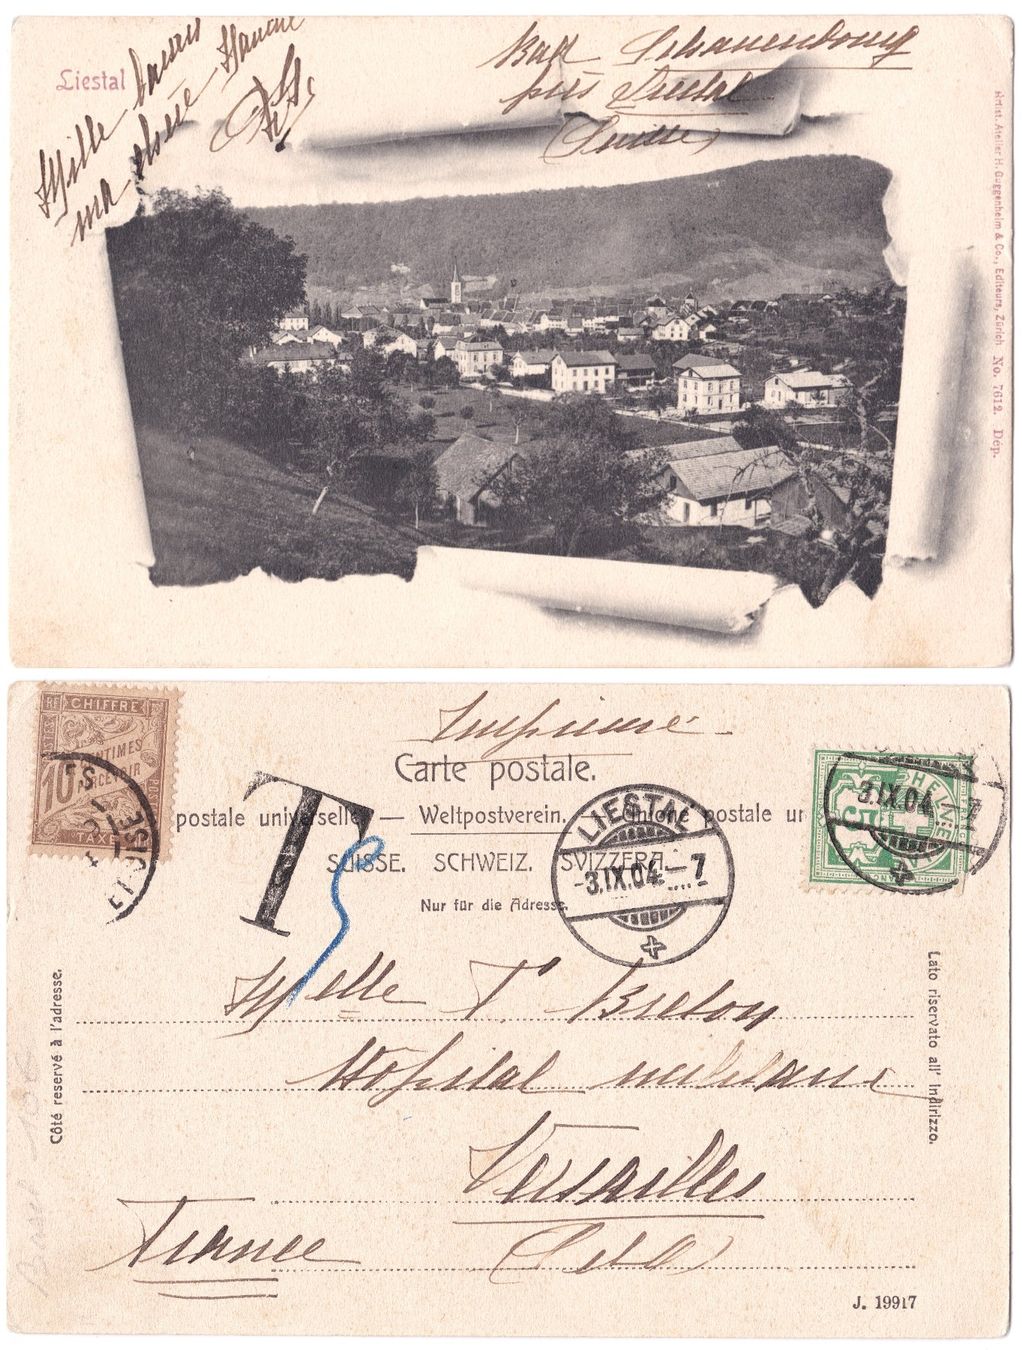 Liestal
Mille baisers
ma chère Blanche
Bad Schauenbourg
près Liestal
(Suisse)
Artist. Atelier H. Guggenheim & Co., Editeurs, Zürich No. 7612. Dép.
Imprimé
Carte postale.
postale universelle — Weltpostverein. — Unione postale un
SUISSE. SCHWEIZ. SVIZZERA.
Nur für die Adresse.
RF CHIFFRE
10 CENTIMES
A PERCEVOIR
TAXE
POSTES
T
LIESTAL
-3.IX.04.-7
HELVETIA
5
FRANCO
3.IX.04
Côté reservé à l'adresse.
Lato riservato all' indirizzo.
Melle
Breton
Hôpital militaire
Versailles
France
(S et O)
Basel 10 €
J. 19917